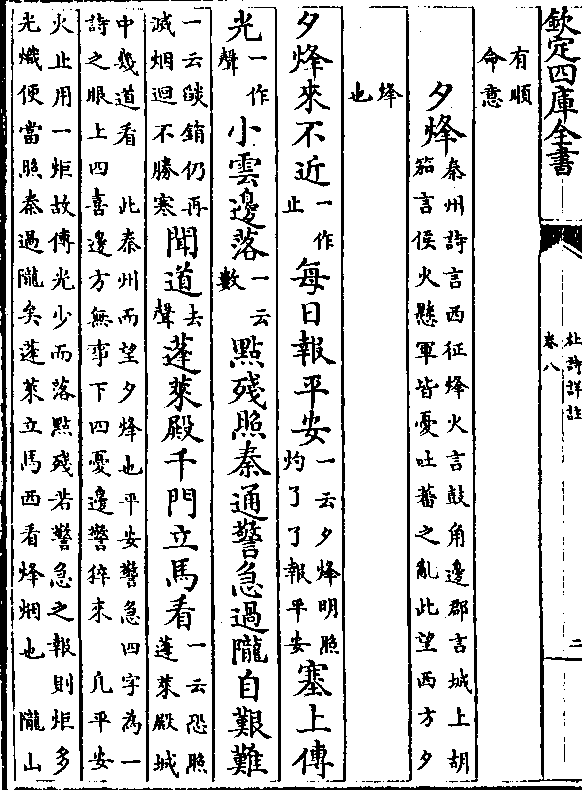 欽定四庫全書
杜詩詳註
卷八
二
有順
命意
夕烽秦州詩言西征烽火言鼓角邊郡言城上胡
笳言侯火懸軍皆憂吐蕃之亂此望西方夕
烽
也
夕烽來不近一作
止每日報平安一云夕烽明照
灼了了報平安塞上傳
光一作
聲小雲邊落一云
數點殘照秦通警急過隴自艱難
一云燄銷仍再
滅烟迴不勝寒聞道去
聲蓬萊殿千門立馬看一云恐照
蓬萊殿城
中幾道看 此秦州而望夕烽也平安警急四字為一
詩之眼上四喜邊方無事下四憂邊警猝來 凡平安
火止用一炬故傳光少而落點殘若警急之報則炬多
光熾便當照秦過隴矣蓬萊立馬西看烽烟也 隴山